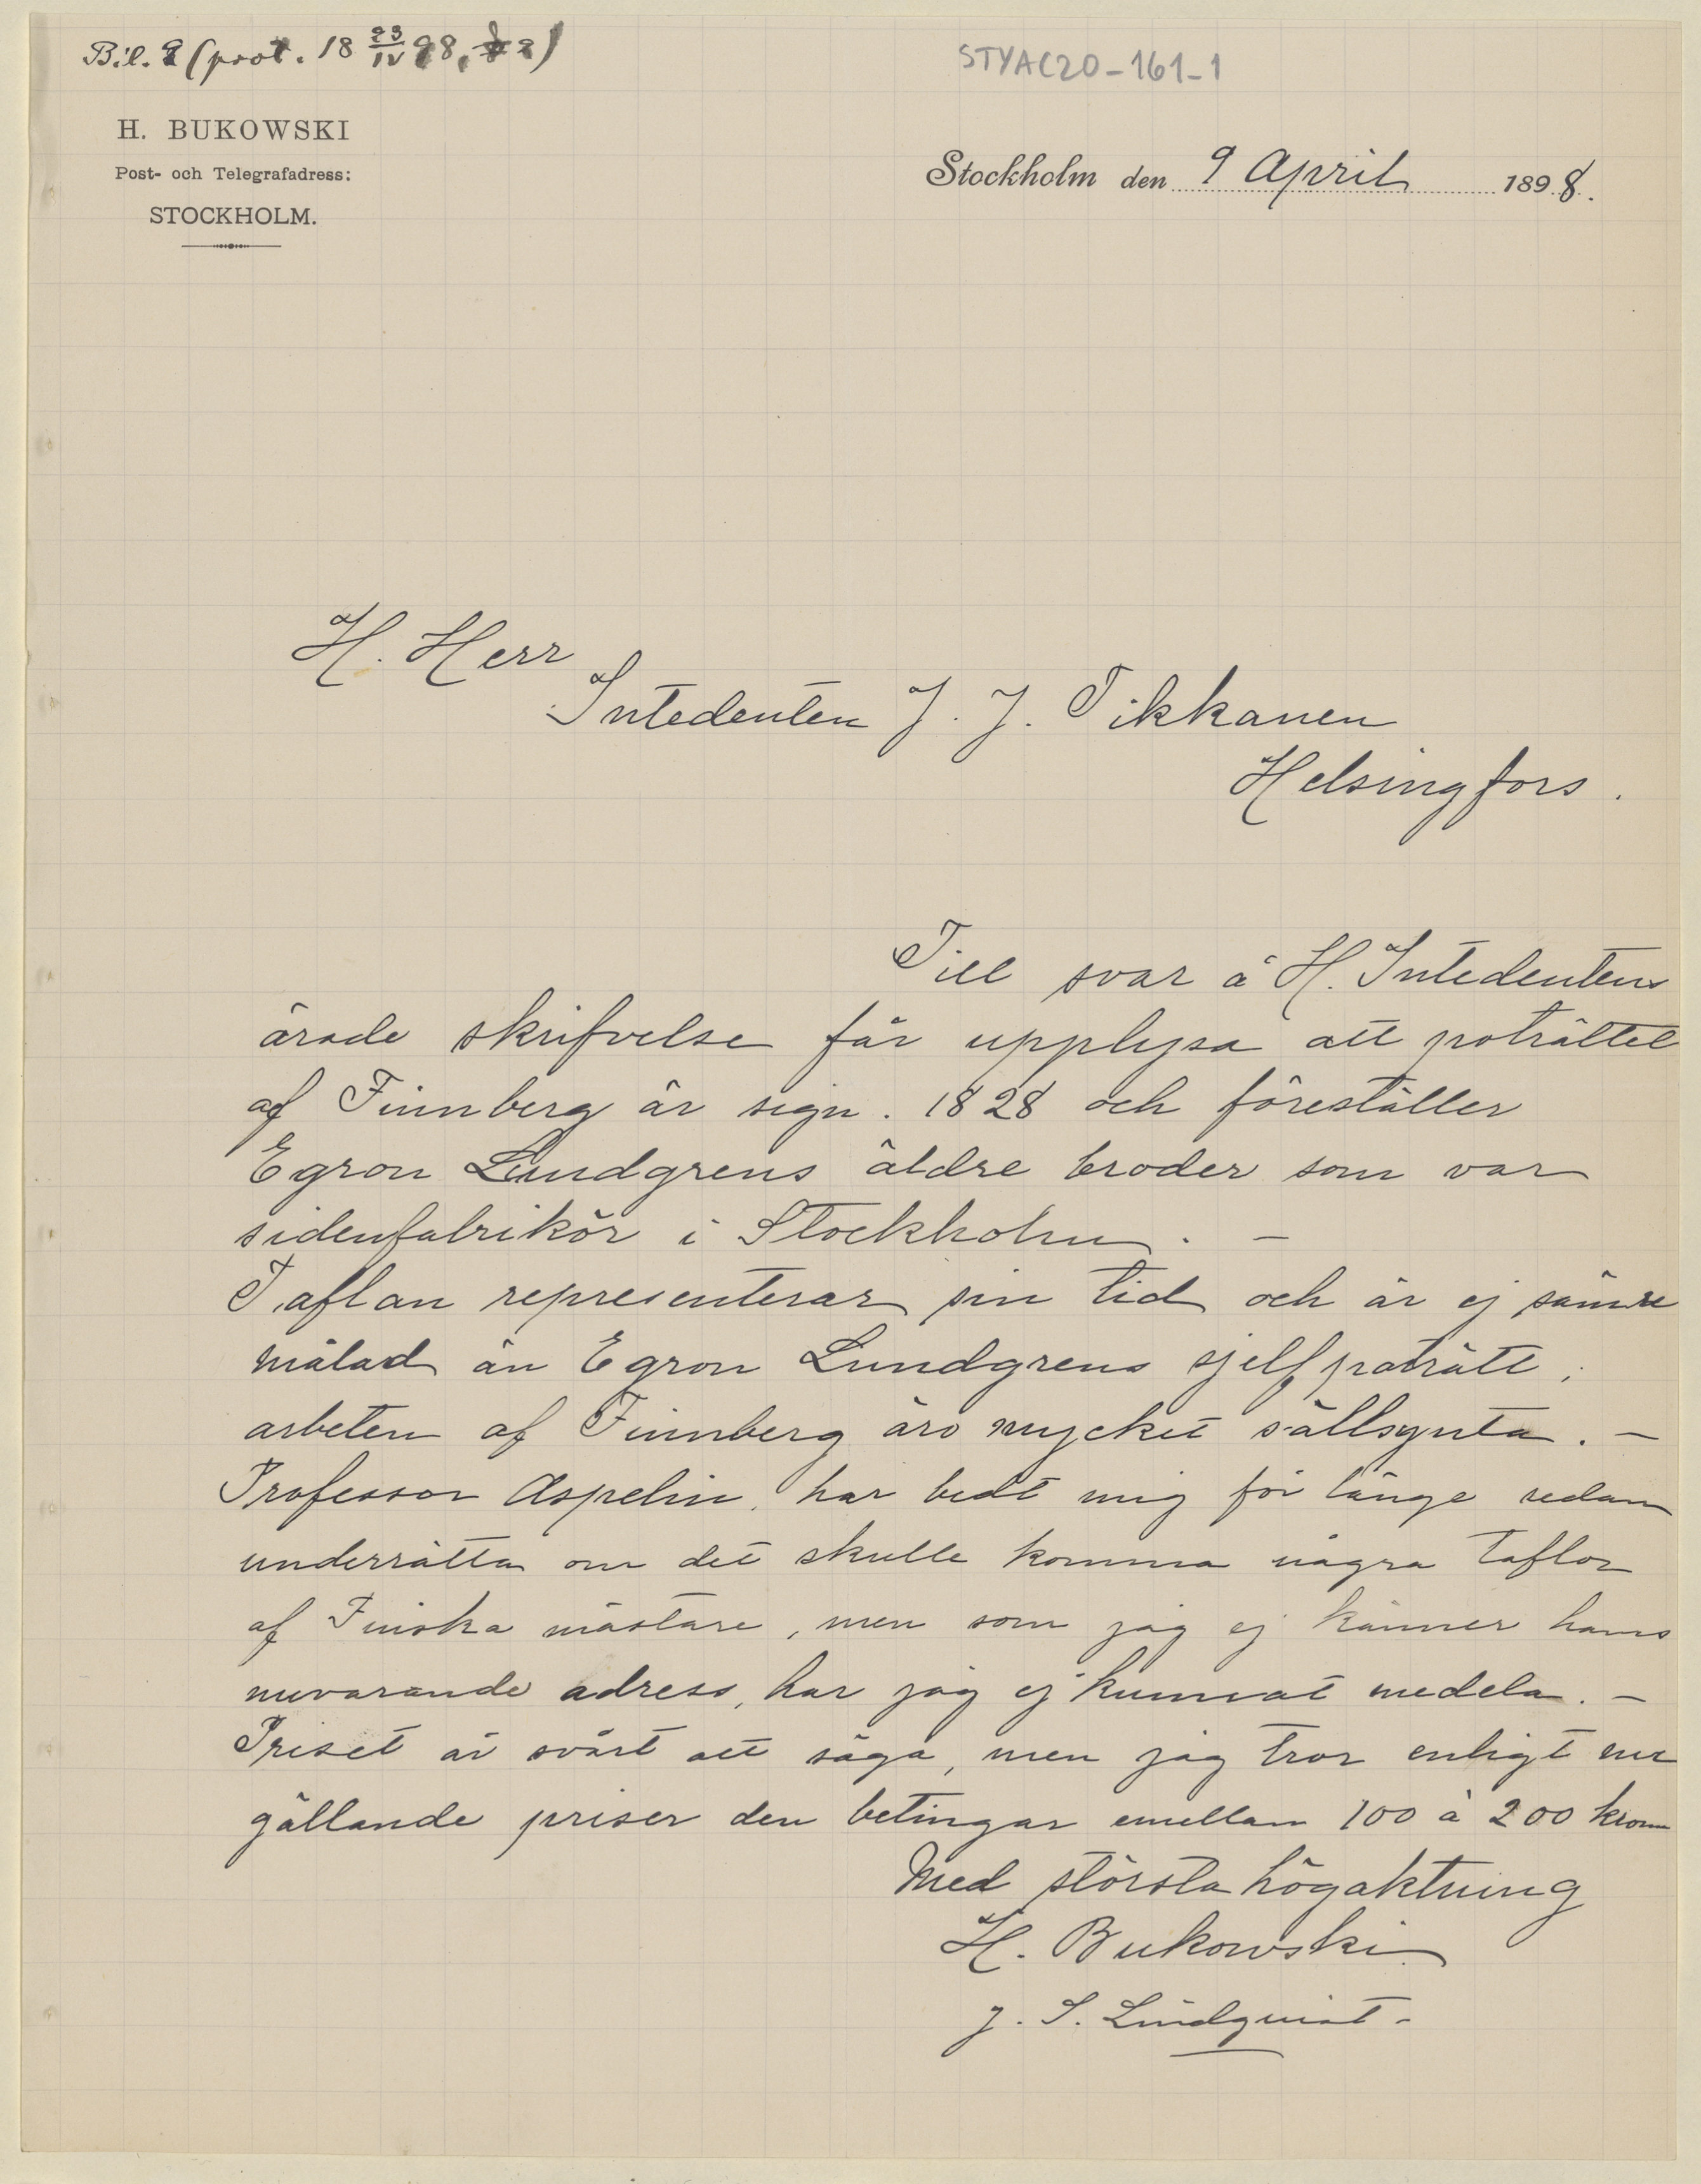 Bil. 2 (prot. 18 23/IV 98, § 2)
STYAC20-161-1
H. BUKOWSKI
Post- och Telegrafadress:
STOCKHOLM.
Stockholm den 9 April 1898.
H. Herr
Intedenten J. J. Tikkanen
Helsingfors.
Till svar å H. Intedentens
ärade skrifvelse får upplysa att poträttet
af Finnberg är sign. 1828 och föreställer
Egron Lundgrens äldre broder som var
sidenfabrikör i Stockholm. —
Taflan representerar sin tid och är ej sämre
målad än Egron Lundgrens sjelfpoträtt;
arbeten af Finnberg äro mycket sällsynta. —
Professor Aspelin, har bedt mig för länge sedan
underrätta om det skulle komma några taflor
af Finska mästare, men som jag ej känner hans
nuvarande adress, har jag ej kunnat medela. —
Priset är svårt att säga, men jag tror enligt nu
gällande priser den betingar emellan 100 à 200 kron
Med största högaktning
H. Bukowski
J. S. Lindquist.